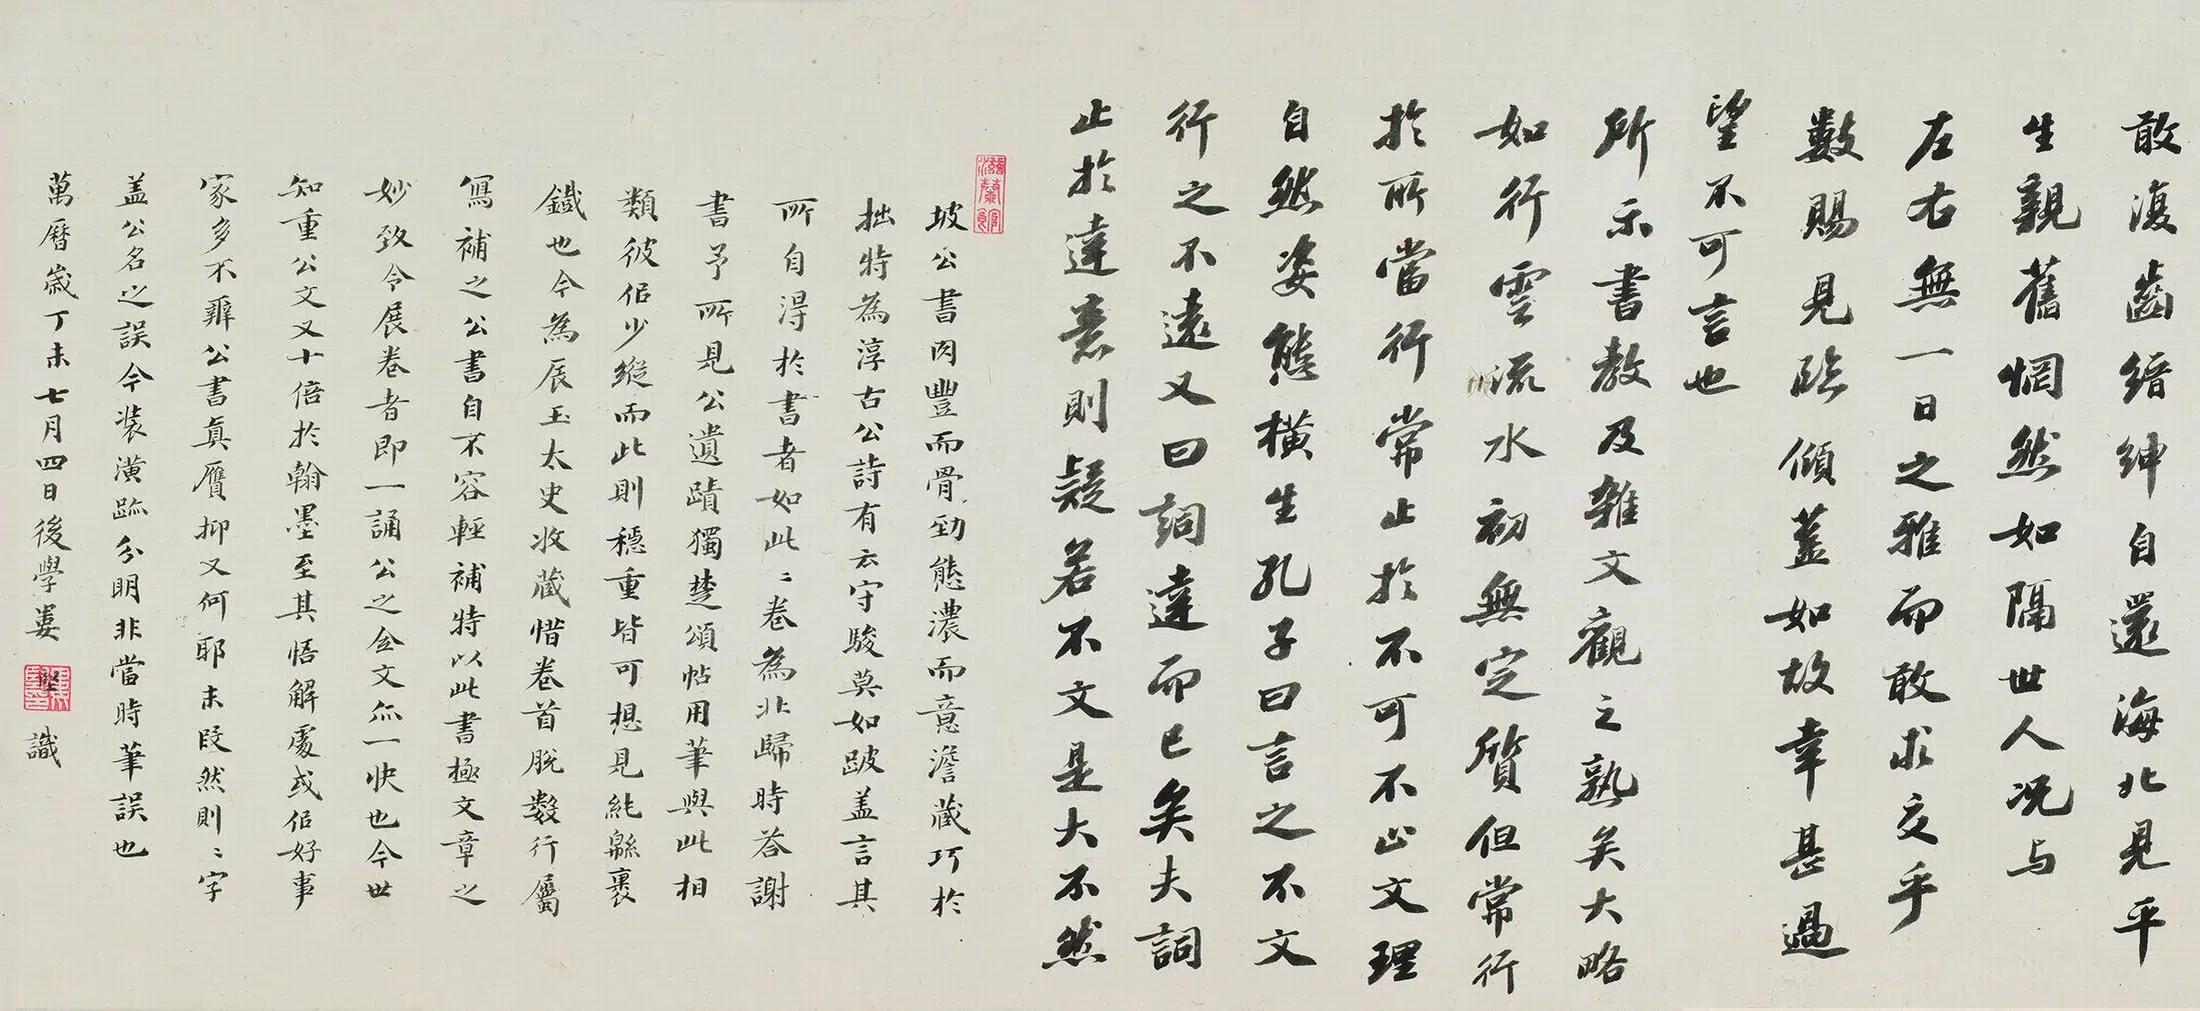 敢復齒縉紳自還海北見平
生親舊惘然如隔世人况与
左右無一日之雅而敢求交乎
數賜見臨傾蓋如故幸甚過
望不可言也
所示書教及雜文觀之熟矣大略
如行雲流水初無定質但常行
於所當行常止於不可不止文理
自然姿態橫生孔子曰言之不文
行之不遠又曰詞達而已矣夫詞
止於達意則疑若不文是大不然
坡公書肉豐而骨勁態濃而意澹藏巧於
拙特為淳古公詩有云守駿莫如跛盖言其
所自得於書者如此〻卷為北歸時答謝
書予所見公遺蹟獨楚頌帖用筆與此相
類彼佀少縱而此則穩重皆可想見純緜裹
鐵也今為辰玉太史收藏惜卷首脫數行屬
寫補之公書自不容輕補特以此書極文章之
妙致令展卷者即一誦公之全文亦一快也今世
知重公文又十倍於翰墨至其悟解處或佀好事
家多不辨公書真贗抑又何耶末段然則〻字
盖公名之誤今装潢跡分明非當時筆誤也
萬曆歲丁未七月四日後學婁堅識